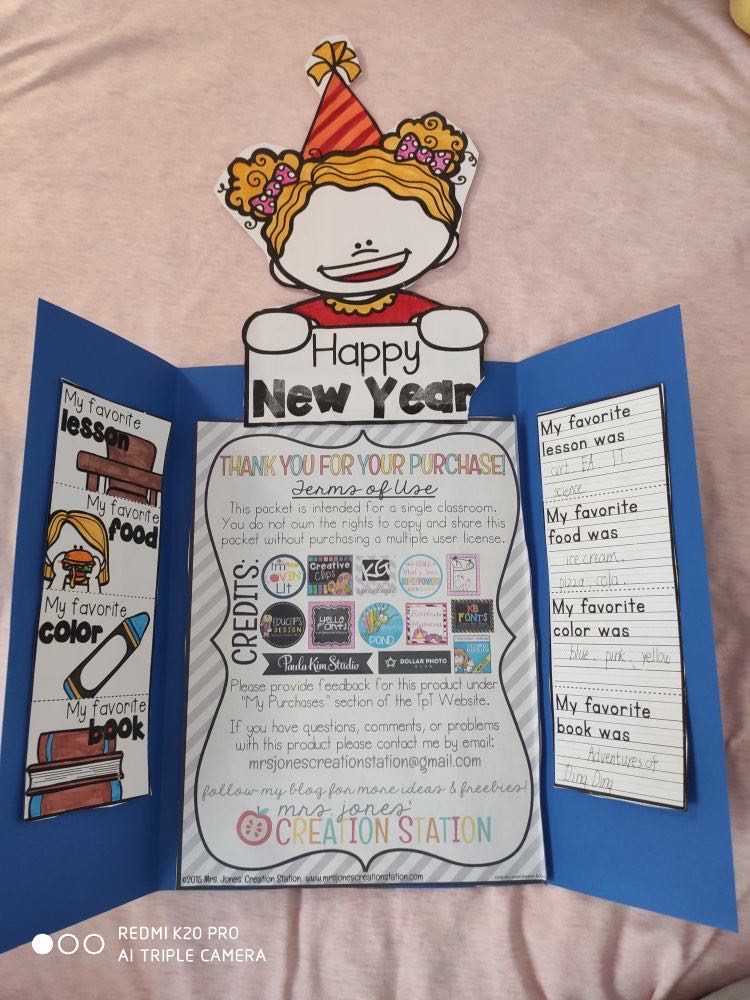 Happy
New Year
My favorite
lesson
My favorite
food
My favorite
color
My favorite
book
THANK YOU FOR YOUR PURCHASE!
Terms of Use
This packet is intended for a single classroom.
You do not own the rights to copy and share this
packet without purchasing a multiple user license.
CREDITS:
I'm
LOVIN'
Lit
Creative
Clips
KG
EDUCLIPS
DESIGN
HELLO
FONTS
POND
KB
FONTS
Paula Kim Studio
DOLLAR PHOTO
CLUB
Please provide feedback for this product under
"My Purchases" section of the TpT Website.
If you have questions, comments, or problems
with this product please contact me by email:
mrsjonescreationstation@gmail.com
follow my blog for more ideas & freebies!
mrs. jones'
CREATION STATION
©2015 Mrs. Jones' Creation Station. www.mrsjonescreationstation.com
My favorite
lesson was
art. EA IT
science.
My favorite
food was
ice cream.
pizza, cola.
My favorite
color was
blue, pink, yellow
My favorite
book was
Adventures of
Ding Ding
REDMI K20 PRO
AI TRIPLE CAMERA